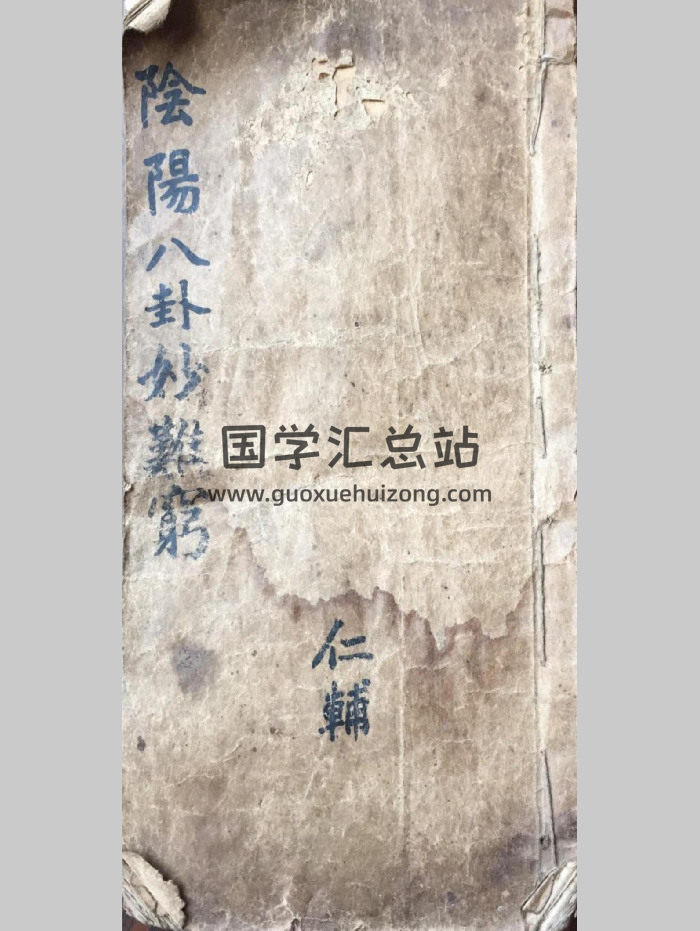 陰陽八卦妙難窮
仁輔
国学汇总站
www.guoxuehuizong.com